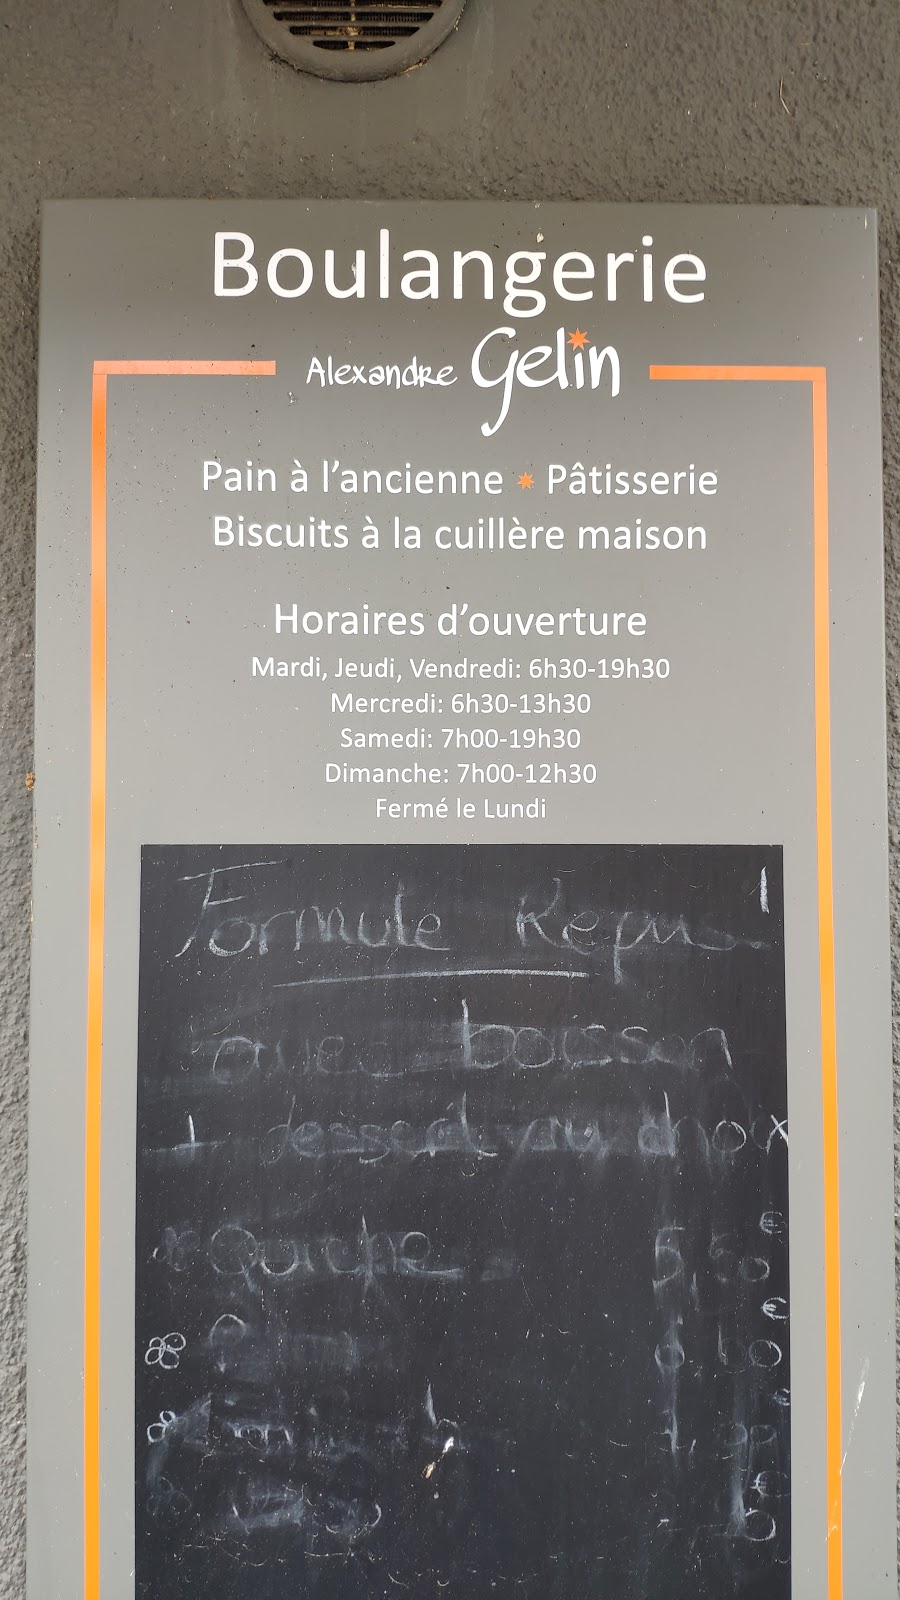 Boulangerie
Alexandre Gelin
Pain à l'ancienne * Pâtisserie
Biscuits à la cuillère maison
Horaires d'ouverture
Mardi, Jeudi, Vendredi: 6h30-19h30
Mercredi: 6h30-13h30
Samedi: 7h00-19h30
Dimanche: 7h00-12h30
Fermé le Lundi
Formule Repas
avec boisson
+ dessert au choix
Quiche 5,50 €
€